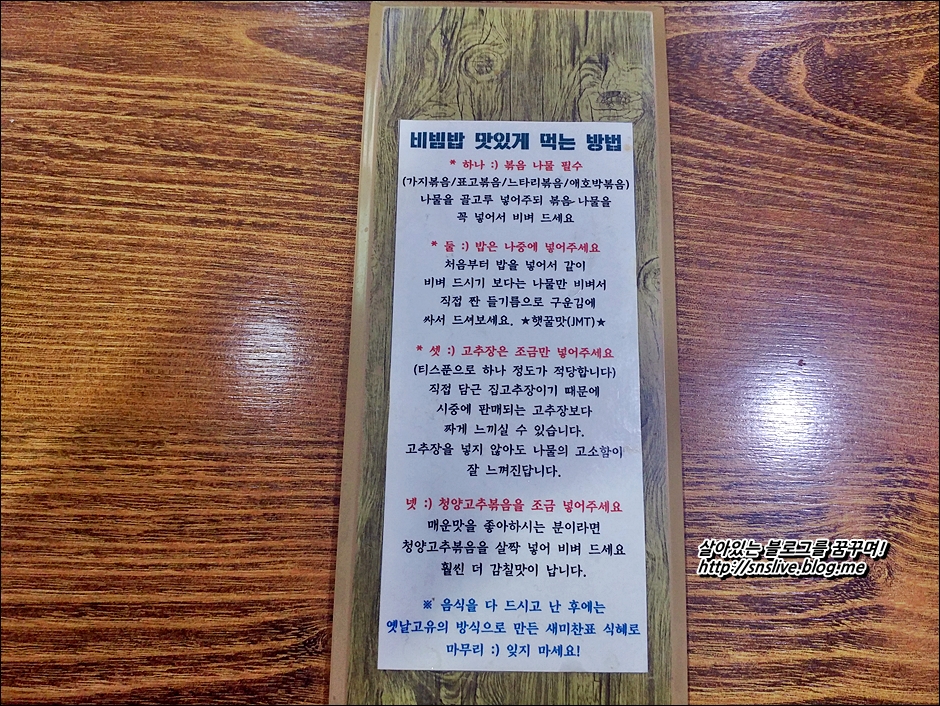 비빔밥 맛있게 먹는 방법
* 하나 :) 볶음 나물 필수
(가지볶음/표고볶음/느타리볶음/애호박볶음)
나물을 골고루 넣어주되 볶음 나물을
꼭 넣어서 비벼 드세요
* 둘 :) 밥은 나중에 넣어주세요
처음부터 밥을 넣어서 같이
비벼 드시기 보다는 나물만 비벼서
직접 짠 들기름으로 구운김에
싸서 드셔보세요. ★햇꿀맛(JMT)★
* 셋 :) 고추장은 조금만 넣어주세요
(티스푼으로 하나 정도가 적당합니다)
직접 담근 집고추장이기 때문에
시중에 판매되는 고추장보다
짜게 느끼실 수 있습니다.
고추장을 넣지 않아도 나물의 고소함이
잘 느껴진답니다.
넷 :) 청양고추볶음을 조금 넣어주세요
매운맛을 좋아하시는 분이라면
청양고추볶음을 살짝 넣어 비벼 드세요
훨씬 더 감칠맛이 납니다.
※ 음식을 다 드시고 난 후에는
옛날고유의 방식으로 만든 새미찬표 식혜로
마무리 :) 잊지 마세요!
살아있는 블로그를 꿈꾸며!
http://snslive.blog.me